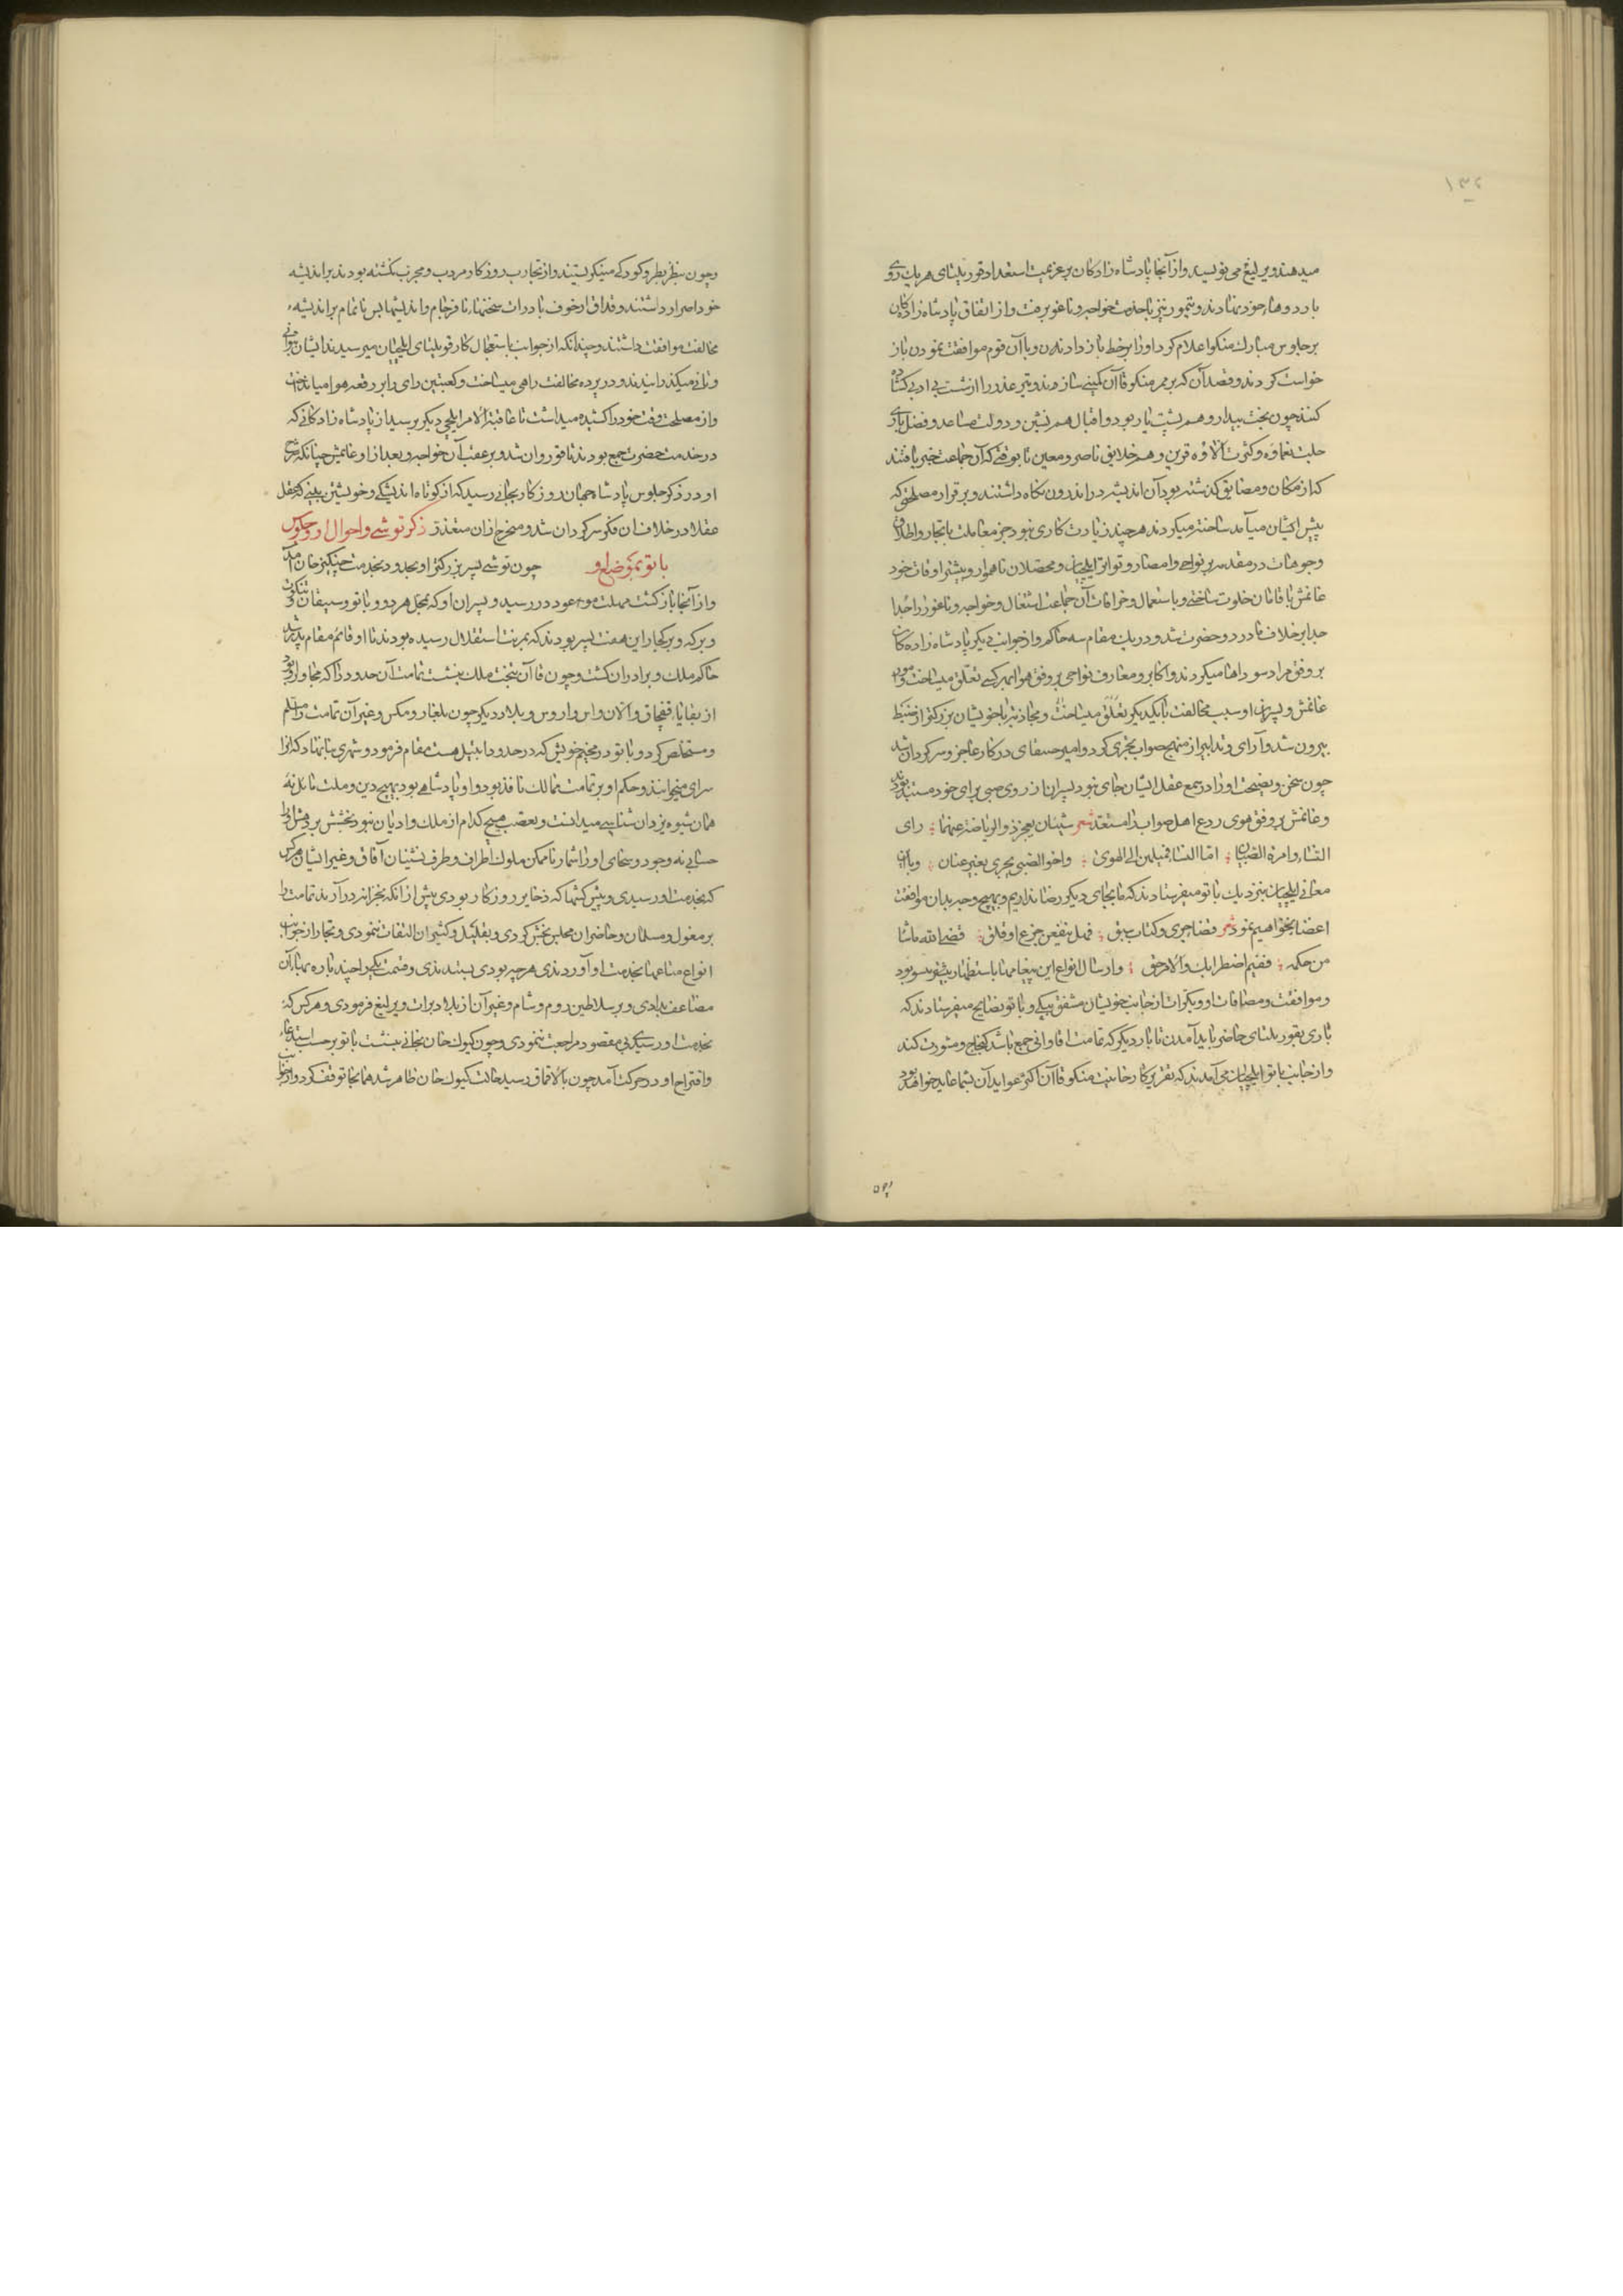 ۱۳۶
میدهند و یرلیغ می نویسید و از آنجا پادشاه زادکان بر عزیمت استعداد قوریلتای هر یک روی
باردوهاء خود نهادند و تیمور نیز با خدمت خواجه و ناغو برفت و از اتفاق پادشاه زادکان
بر جلوس مبارک منکو اعلام کرد او را بر خط باز دادن و با آن قوم موافقت نمودن باز
خواست کردند و قصد آن که بر ممر منکو قاآن کمینی سازند و تیر غدر را از شست بی ادبی کشاد
کنند چون بخت بیدار و هم پشت یار بود و اقبال هم نشین و دولت مساعد و فضل باری
جلت نعماؤه و کثرت آلاؤه قرین و هم خلایق ناصر و معین تا بوقتی که آن جماعت خبر یافتند
که از مکان و مضایق کذشته بود آن اندیشه در اندرون نکاه داشتند و بر قرار مصلحتی که
پیش ایشان میآمد ساخته میکردند هر چند زیادت کاری نبود جز معاملت با تجار و اطلاق
وجوهات در مقدمه بر نواحی و امصار و تواتر ایلچیان و محصلان ناهموار و بیشتر اوقات خود
غانمش با قامان خلوت ساختی و باستعمال و خرافات آن جماعت اشتغال و خواجه و ناغو را جدا
جدا بر خلاف مادر دو حضرت شد و در یک مقام سه حاکم و از جوانب دیکر پادشاه زاده کان
بر وفق مراد سوداها میکردند و اکابر و معارف نواحی بر وفق هوا بهر کسی تعلق میساخت و امور
غانمش و پسران او سبب مخالفت با یکدیکر تعلق میساخت و مجاذبه با خویشان بزرکتر از ضبط
بیرون شد و آرای و تدابیر از منهج صواب تحری کرد و امیر چینقای در کار عاجز و سرکردان شد
چون سخن و نصیحت او را در سمع عقل ایشان جای نبود پسران از روی صبی برای خود مستبد بودند
و غانمش بر وفق هوی ردع اهل صواب را مستعد شعر شیئان یعجز ذو الریاضة عنهما ؛ رای
النساء و امرة الصبیان ؛ اما النساء فمیلهن الی الهوی ؛ و اخو الصبی یجری بغیر عنان ؛ و با این
معانی ایلچیان بنزدیک باتو میفرستادند که ما بجای دیکر رضا نداریم و بهیچ وجه بدان موافقت
اعضا نخواهیم نمود شعر قضا جری و کتاب سبق ؛ فهل ینفعن جزع او قلق ؛ قضی الله ماشا
من حکمه ؛ ففیم اضطرابک و الامر حق ؛ و ارسال انواع این پیغامها باستظهار بیشتر ییسو بود
و موافقت و مصافات او و بکرات از جانب خویشان مشفق بیکی و باتو نصایح میفرستادند که
باری بقوریلتای حاضر باید آمدن تا بار دیکر که تمامت اقا و اینی جمع باشند کنکاج و مشورت کنند
و از جانب باتو ایلچیان می آمدند که تقریر کار خانیت منکو قاآن اکثر عواید آن بشما عاید خواهد بود
و چون بنظر بطر و کودکی مینکریستند و از تجارب روزکار مردب و مجرب نکشته بودند بر اندیشه
خود اصرار داشتند و قداق از خوف بادرات سخنهاء نافرجام و اندیشهای ناتمام بر اندیشهء
مخالفت موافقت داشتند و چندانکه از جوانب باستعجال کار قوریلتای ایلچیان میرسیدند ایشان بتوانی
و تانی میکذرانیدند و در پرده مخالفت راهی میساخت و کعبتین رای را بر رقعه هوا میانداخت
و از مصلحت وقت خود را کشیده میداشت تا عاقبة الامر ایلچی دیکر برسید از پادشاه زادکانی که
در خدمت حضرت جمع بودند تا قور روان شد و بر عقب آن خواجه و بعد از او غانمش چنانکه شرح
او در ذکر جلوس پادشاه جهان روزکار بجائی رسید که از کوتاه اندیشکی و خویشتن بینی که عقل
عقلا در خلاف آن فکر سرکردان شد و مخرج از آن متعذر ذکر توشی و احوال او و جلوس
باتو بموضع او چون توشی پسر بزرکتر او بحدود بخدمت چینکیز خان آمد
و از آنجا بازکشت مهلت موعود در رسید و پسران او که بمحل هردو و باتو و سیبقان تنکوت
و برکه و برکجار این هفت پسر بودند که بمرتبت استقلال رسیده بودند تا او قائم مقام پدر شد
حاکم ملک و برادران کشت و چون قاآن بتخت ملک بنشست تمامت آن حدود را که مجاور او بود
از بقایا، قفچاق و آلان و اس و اروس و بلاد دیکر چون بلغار و مکس و غیر آن تمامت را مسلم
و مستخلص کرد و باتو در مخیم خویش که در حدود ایتیل هست مقام فرمود و شهری بنا نهاد که آنرا
سرای میخوانند و حکم او بر تمامت ممالک نافذ بود و او پادشاهی بود بهیچ دین و ملت مائل نه
همان شیوه یزدان شناسی میدانست و تعصب هیچ کدام از ملک و ادیان نبود بخشش بر دهش او را
حسابی نه و جود و سخای او را شمار ناممکن ملوک اطراف و طرف نشینان آفاق و غیر ایشان هر کس
که بخدمت او رسیدی و پیش کشها که ذخایر روزکار بودی پیش از آنکه بخزانه درآرند تمامت را
بر مغول و مسلمان و حاضران مجلس بخش کردی و بقلیل و کثیر آن التفات ننمودی و تجار از جوانب
انواع متاعها بخدمت او آوردندی هر چه بودی بستندی و قیمت یکی را چند باره بها بآن
مضاعف بدادی و بر سلاطین روم و شام و غیر آن از بلاد برات و یرلیغ فرمودی و هر کس که
بخدمت او رسیدی بی مقصود مراجعت ننمودی و چون کیوک خان بخانی بنشست باتو بر حسب استدعاء
و اقتراح او در حرکت آمد چون بالاقماق رسید حالت کیوک خان ظاهر شد همانجا توقف کرد و از جوانب